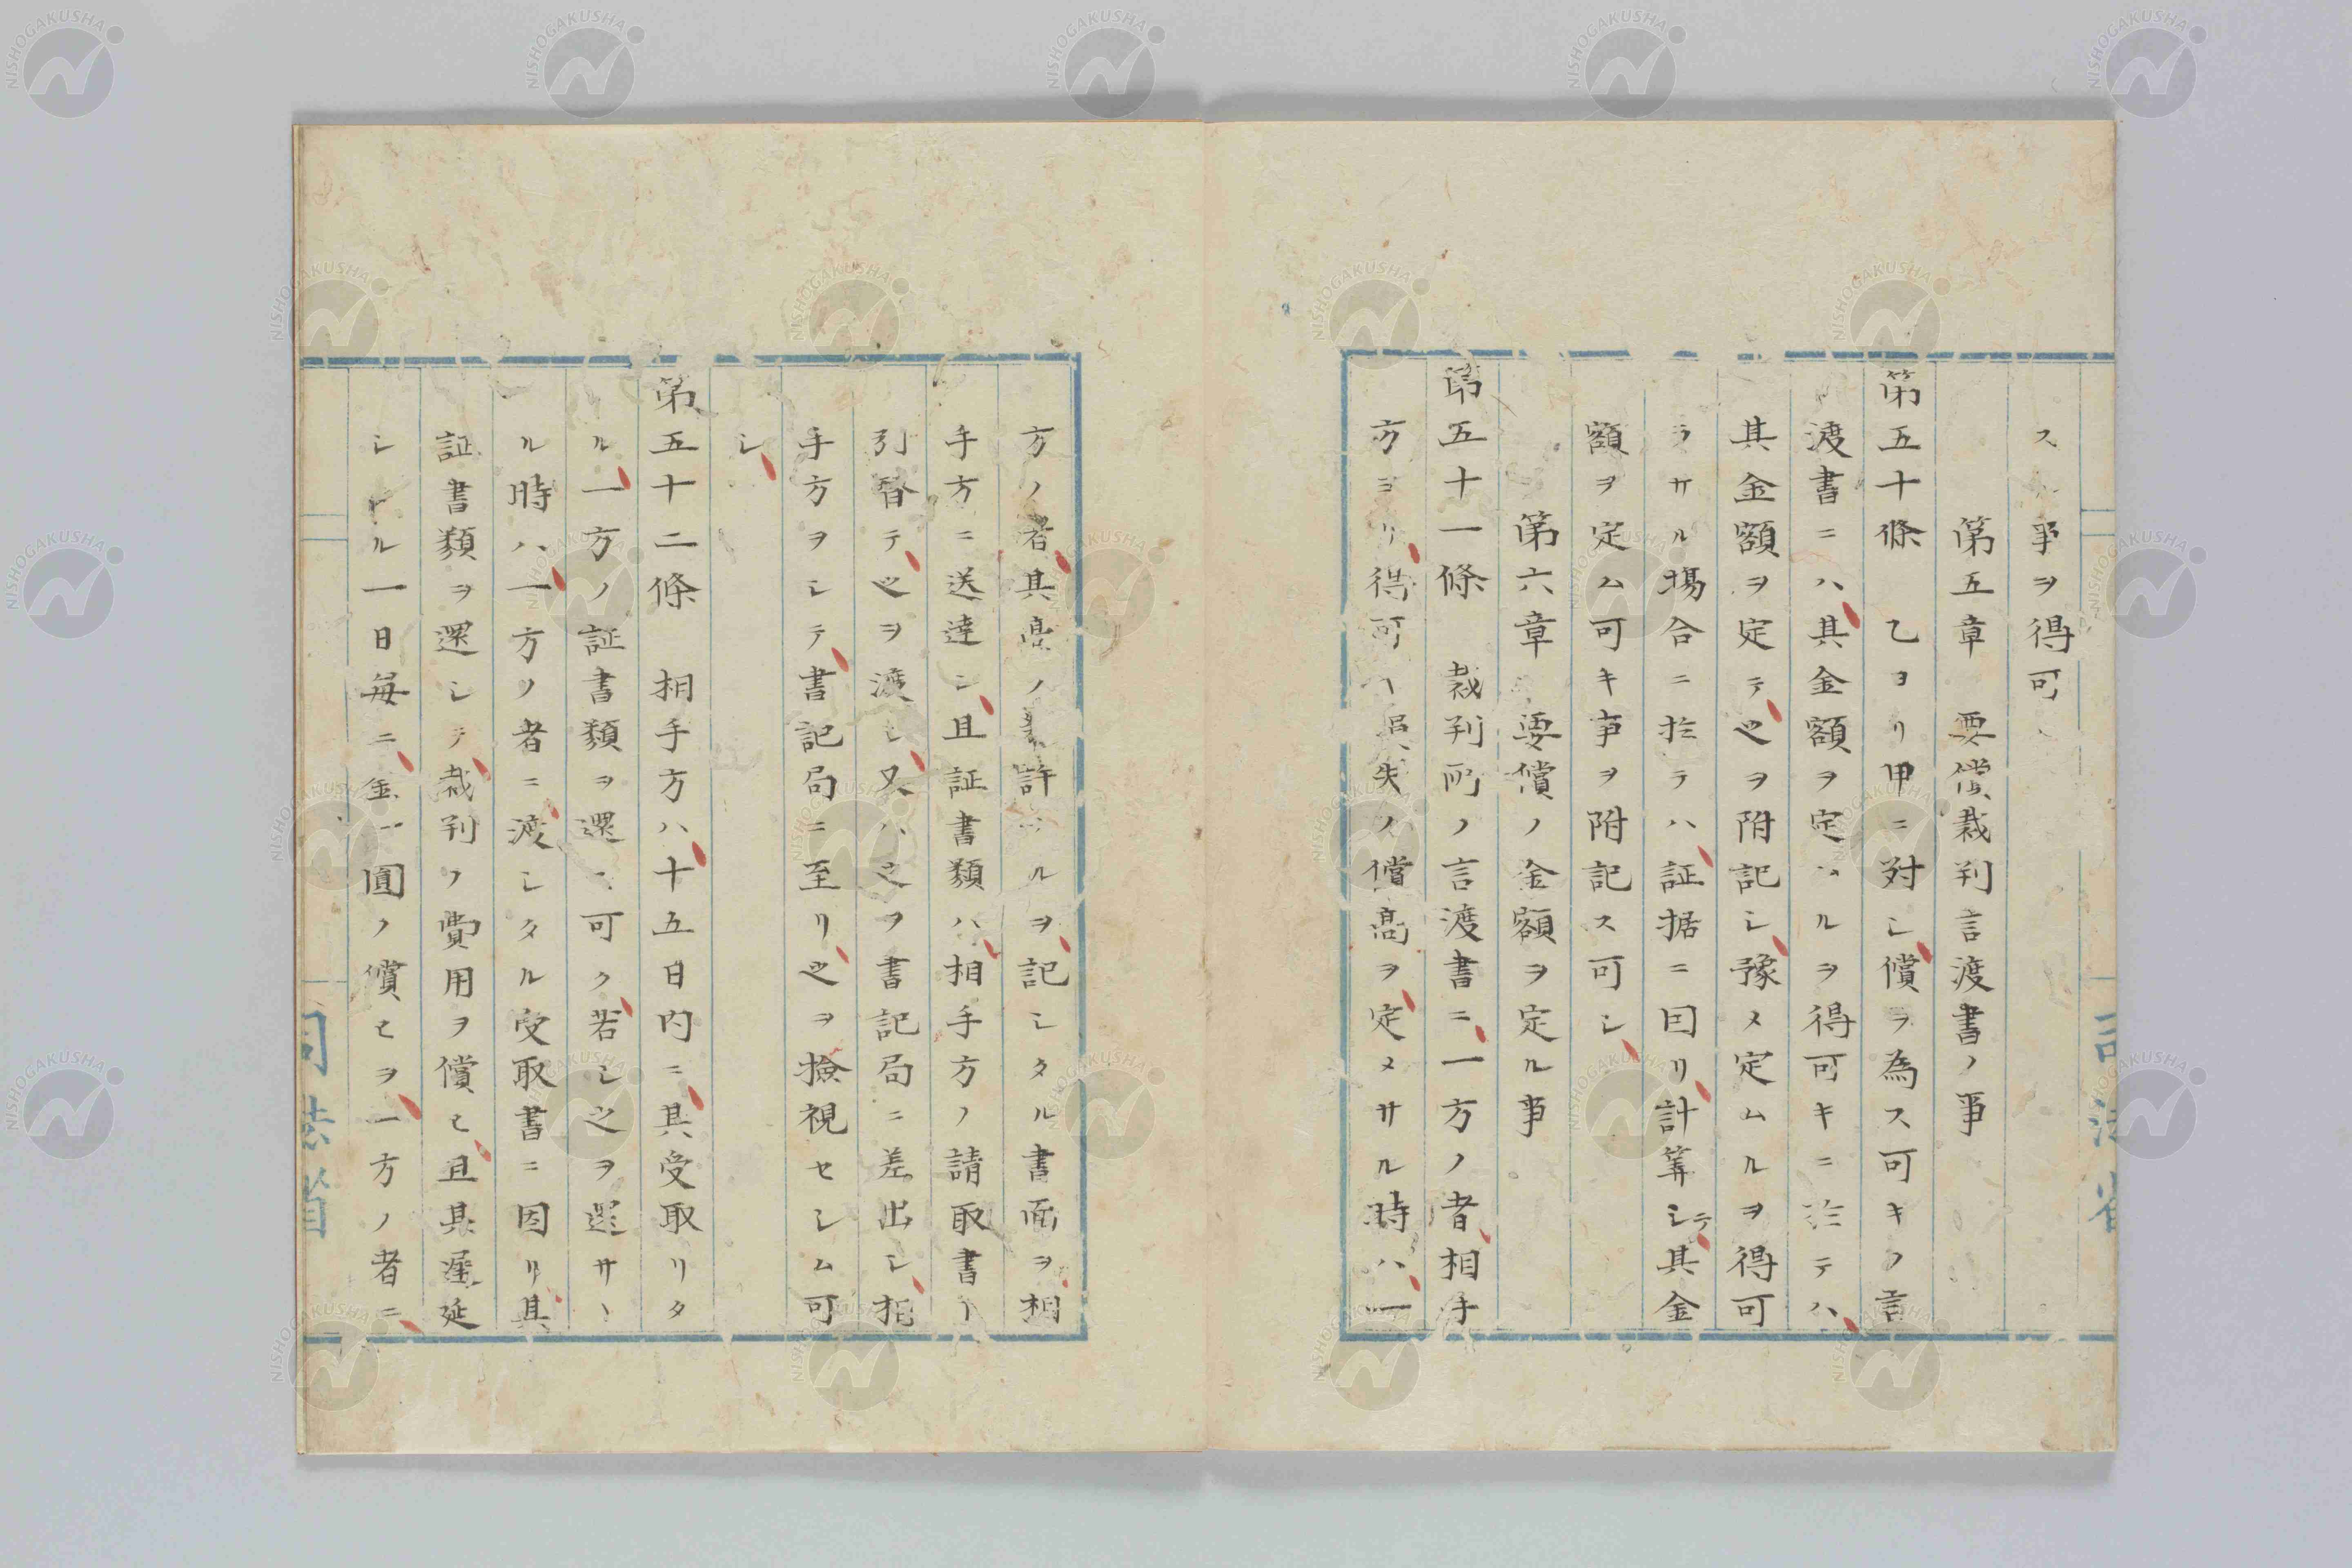 ス事ヲ得可
第五章 要償裁判言渡書ノ事
第五十條 乙ヨリ甲ニ対シ償ヲ為ス可キノ言
渡書ニハ其金額ヲ定ルヲ得可キニ於テハ
其金額ヲ定テ之ヲ附記シ豫メ定ムルヲ得可
ラサル場合ニ於テハ証据ニ因リ計算シテ其金
額ヲ定ム可キ事ヲ附記ス可シ
第六章 要償ノ金額ヲ定ル事
第五十一條 裁判所ノ言渡書ニ一方ノ者相手
方ヨリ得可 損失ノ償高ヲ定メサル時ハ一
方ノ者其高ノ 許 ルヲ記シタル書面ヲ相
手方ニ送達シ且証書類ハ相手方ノ請取書ト
引替テ之ヲ渡シ又ハ之ヲ書記局ニ差出シ相
手方ヲシテ書記局ニ至リ之ヲ撿視セシム可
シ
第五十二條 相手方ハ十五日内ニ其受取リタ
ル一方ノ証書類ヲ還ス可ク若シ之ヲ還サヽ
ル時ハ一方ノ者ニ渡シタル受取書ニ因リ其
証書類ヲ還シテ裁判ノ費用ヲ償ヒ且其遲延
シタル一日毎ニ金一圓ノ償ヒヲ一方ノ者ニ
司法省
NISHOGAKUSHA